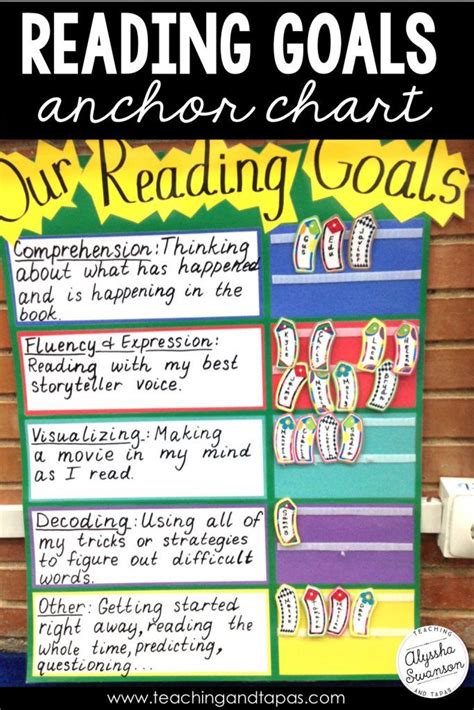 READING GOALS
anchor chart
Our Reading Goals
Comprehension: Thinking
about what has happened
and is happening in the
book.
Gus
Edu
Fluency & Expression:
Reading with my best
storyteller voice.
Visualizing: Making
a movie in my mind
as I read.
Decoding: Using all of
my tricks or strategies
to figure out difficult
words.
Other: Getting started
right away, reading the
whole time, predicting,
questioning...
TEACHING
Alyssha
Swanson
AND TAPAS
www.teachingandtapas.com